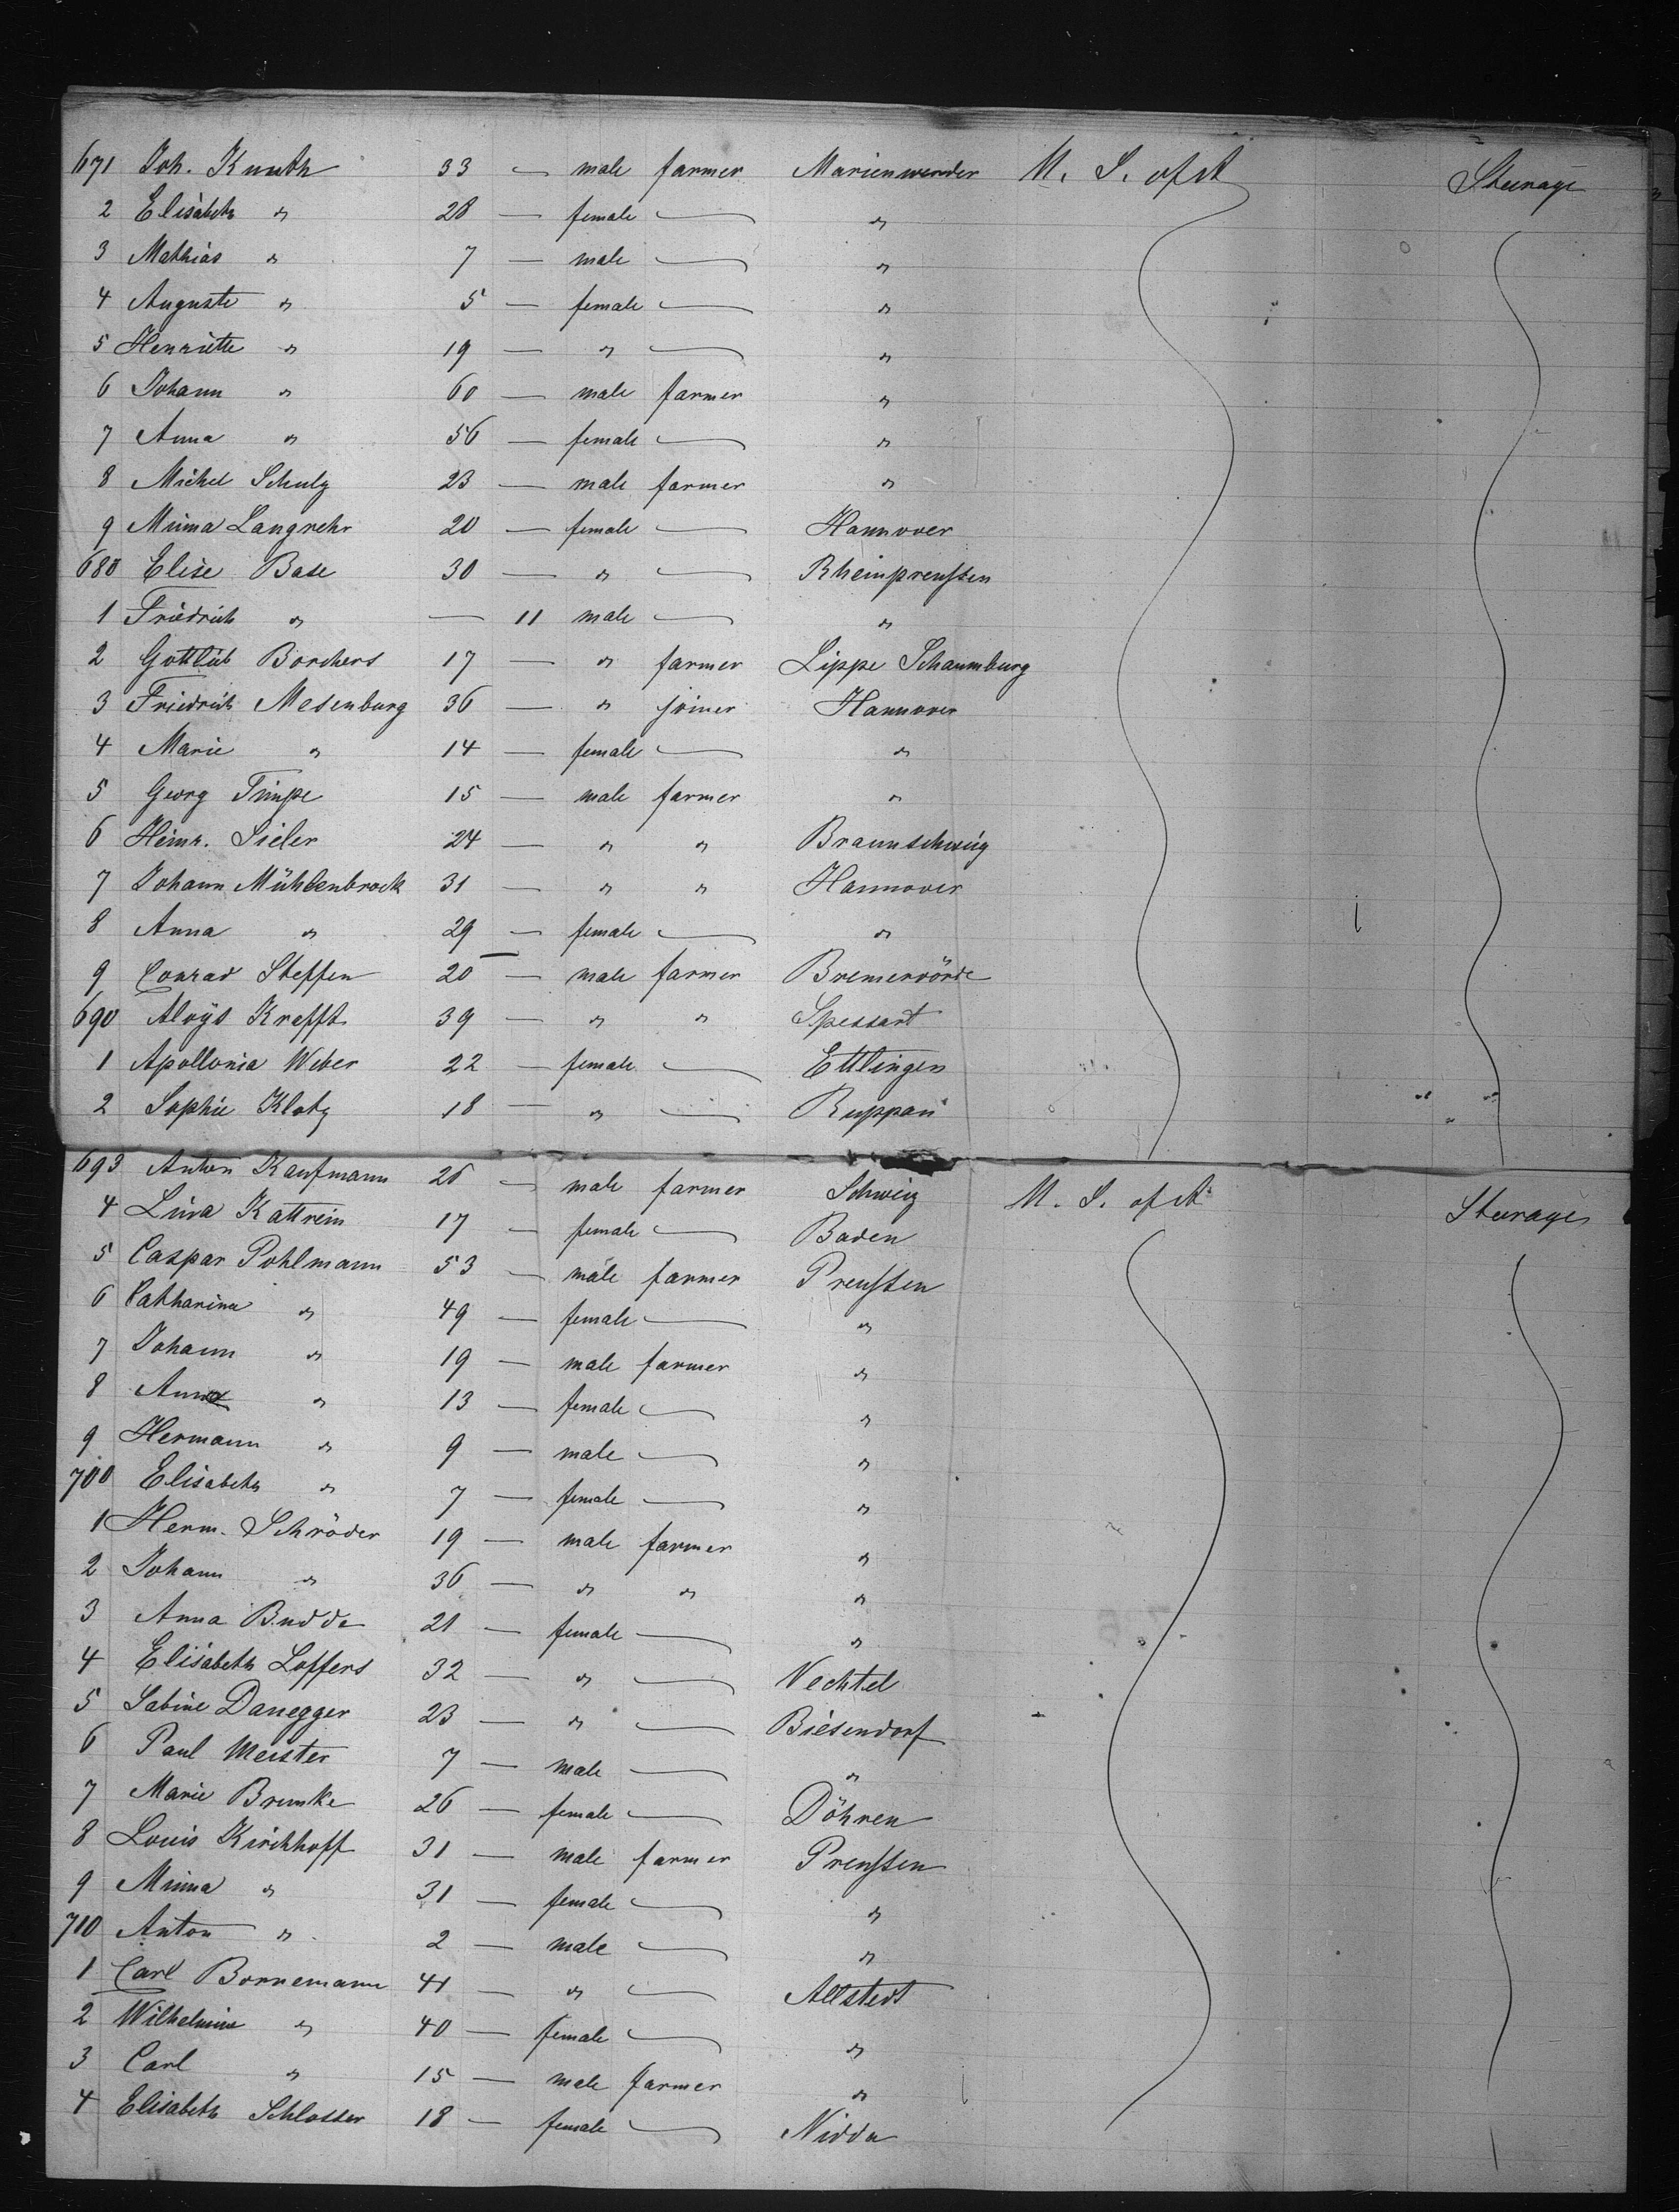 671 Joh. Kunth 33 — male farmer Marienwerder U. S. of A Steerage
2 Elisabeth " 28 — female — "
3 Mathias " 7 — male — "
4 Auguste " 5 — female — "
5 Henriette " 19 — " — "
6 Johann " 60 — male farmer "
7 Anna " 56 — female — "
8 Michel Schulz 23 — male farmer "
9 Minna Langrehr 20 — female — Hannover
680 Elise Base 30 — " — Rheinpreussen
1 Friedrich " — 11 male — "
2 Gottlieb Borchers 17 — " farmer Lippe Schaumburg
3 Friedrich Mesenburg 36 — " joiner Hannover
4 Marie " 14 — female — "
5 Georg Timpe 15 — male farmer "
6 Heinr. Sieler 24 — " " Braunschweig
7 Johann Mühlenbrock 31 — " " Hannover
8 Anna " 29 — female — "
9 Conrad Steffen 20 — male farmer Bremervörde
690 Aloys Krafft 39 — " " Spessart
1 Apollonia Weber 22 — female — Ettlingen
2 Sophie Klotz 18 — " — Ruppan
693 Anton Kaufmann 26 — male farmer Schweiz U. S. of A Steerage
4 Lina Kattrein 17 — female — Baden
5 Caspar Pohlmann 53 — male farmer Preussen
6 Catharina " 49 — female — "
7 Johann " 19 — male farmer "
8 Anna " 13 — female — "
9 Hermann " 9 — male — "
700 Elisabeth " 7 — female — "
1 Herm. Schröder 19 — male farmer "
2 Johann " 36 — " " "
3 Anna Budde 21 — female — "
4 Elisabeth Loffers 32 — " — Vechtel
5 Sabine Danegger 23 — " — Biesendorf
6 Paul Meister 7 — male — "
7 Marie Brumke 26 — female — Döhren
8 Louis Kirchhoff 31 — male farmer Preussen
9 Minna " 31 — female — "
710 Anton " 2 — male — "
1 Carl Bornemann 41 — " — Allstedt
2 Wilhelmine " 40 — female — "
3 Carl " 15 — male farmer "
4 Elisabeth Schlosser 18 — female — Nidda